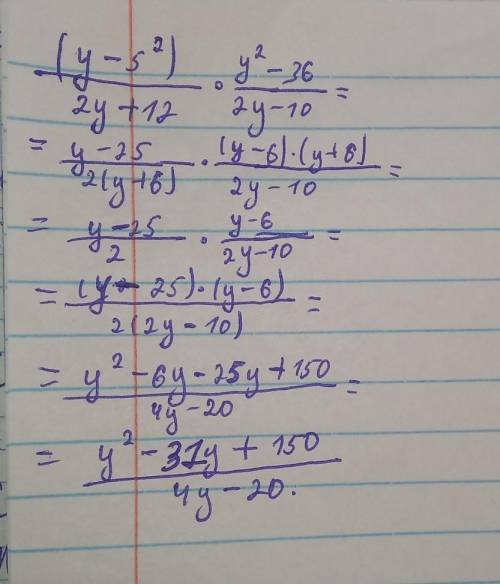 (y - 5²) / 2y + 12 · y² - 36 / 2y - 10 =
= y - 25 / 2(y + 6) · (y - 6) · (y + 6) / 2y - 10 =
= y - 25 / 2 · y - 6 / 2y - 10 =
= (y - 25) · (y - 6) / 2(2y - 10) =
= y² - 6y - 25y + 150 / 4y - 20 =
= y² - 31y + 150 / 4y - 20.